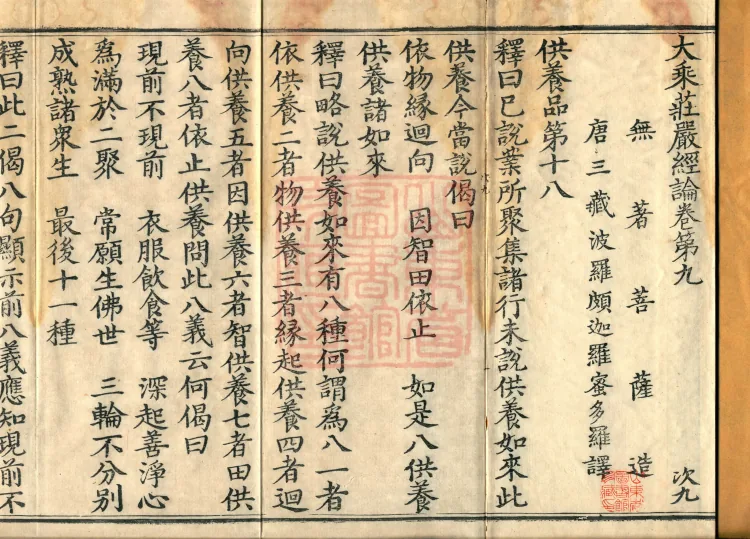 大乘莊嚴經論卷第九 次九
無著菩薩造
唐三藏波羅頗迦羅蜜多羅譯
供養品第十八
釋曰已說業所聚集諸行未說供養如來此
供養今當說偈曰
依物緣迴向 因智田依止 如是八供養
供養諸如來
釋曰略說供養如來有八種何謂為八一者
依供養二者物供養三者緣起供養四者迴
向供養五者因供養六者智供養七者田供
養八者依止供養問此八義云何偈曰
現前不現前 衣服飲食等 深起善淨心
為滿於二聚 常願生佛世 三輪不分別
成熟諸衆生 最後十一種
釋曰此二偈八句顯示前八義應知現前不